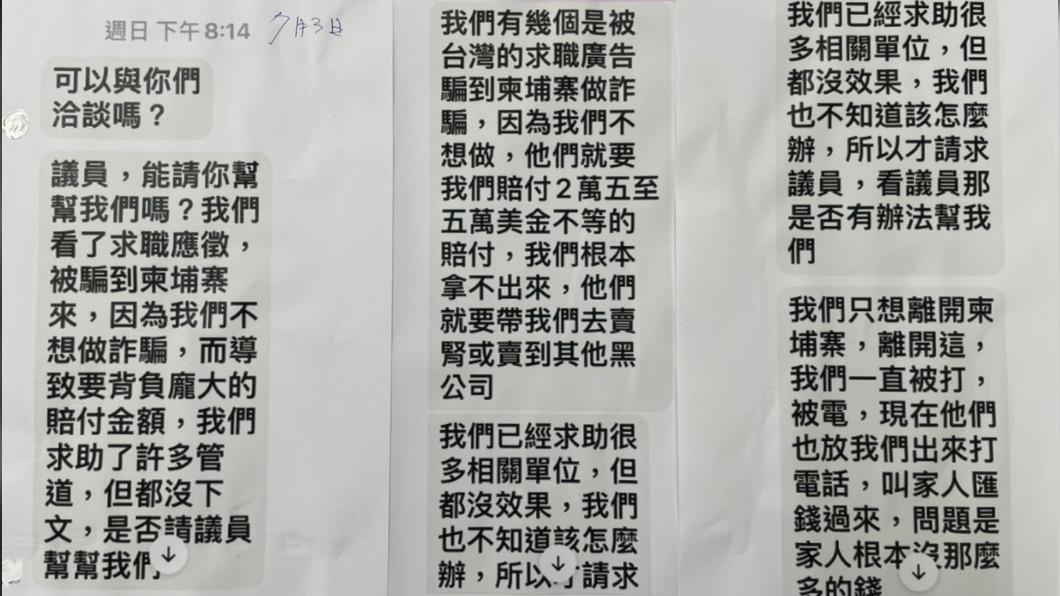 週日 下午8:14
7月3日
可以與你們
洽談嗎？
議員，能請你幫
幫我們嗎？我們
看了求職應徵，
被騙到柬埔寨
來，因為我們不
想做詐騙，而導
致要背負龐大的
賠付金額，我們
求助了許多管
道，但都沒下
文，是否請議員
幫幫我們
我們有幾個是被
台灣的求職廣告
騙到柬埔寨做詐
騙，因為我們不
想做，他們就要
我們賠付2萬五至
五萬美金不等的
賠付，我們根本
拿不出來，他們
就要帶我們去賣
腎或賣到其他黑
公司
我們已經求助很
多相關單位，但
都沒效果，我們
也不知道該怎麼
辦，所以才請求
我們已經求助很
多相關單位，但
都沒效果，我們
也不知道該怎麼
辦，所以才請求
議員，看議員那
是否有辦法幫我
們
我們只想離開柬
埔寨，離開這，
我們一直被打，
被電，現在他們
也放我們出來打
電話，叫家人匯
錢過來，問題是
家人根本沒那麼
多的錢